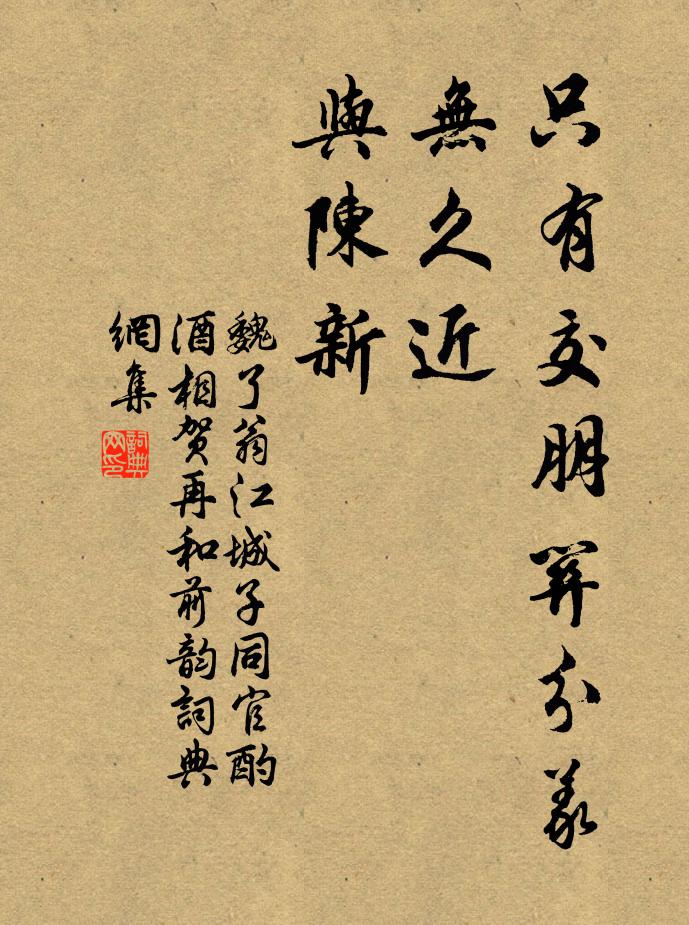 只有交朋關分義
無久近
與陳新
魏了翁江城子同官酌
酒相贺再和前韵詞典
網集
詞典
网印